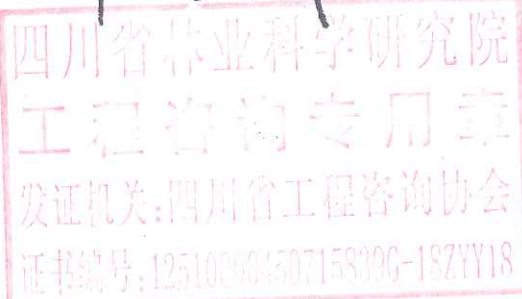 四川省林业科学研究院
工程咨询专用章
发证机关:四川省工程咨询协会
证书编号:12510000450715839G-18ZYY18